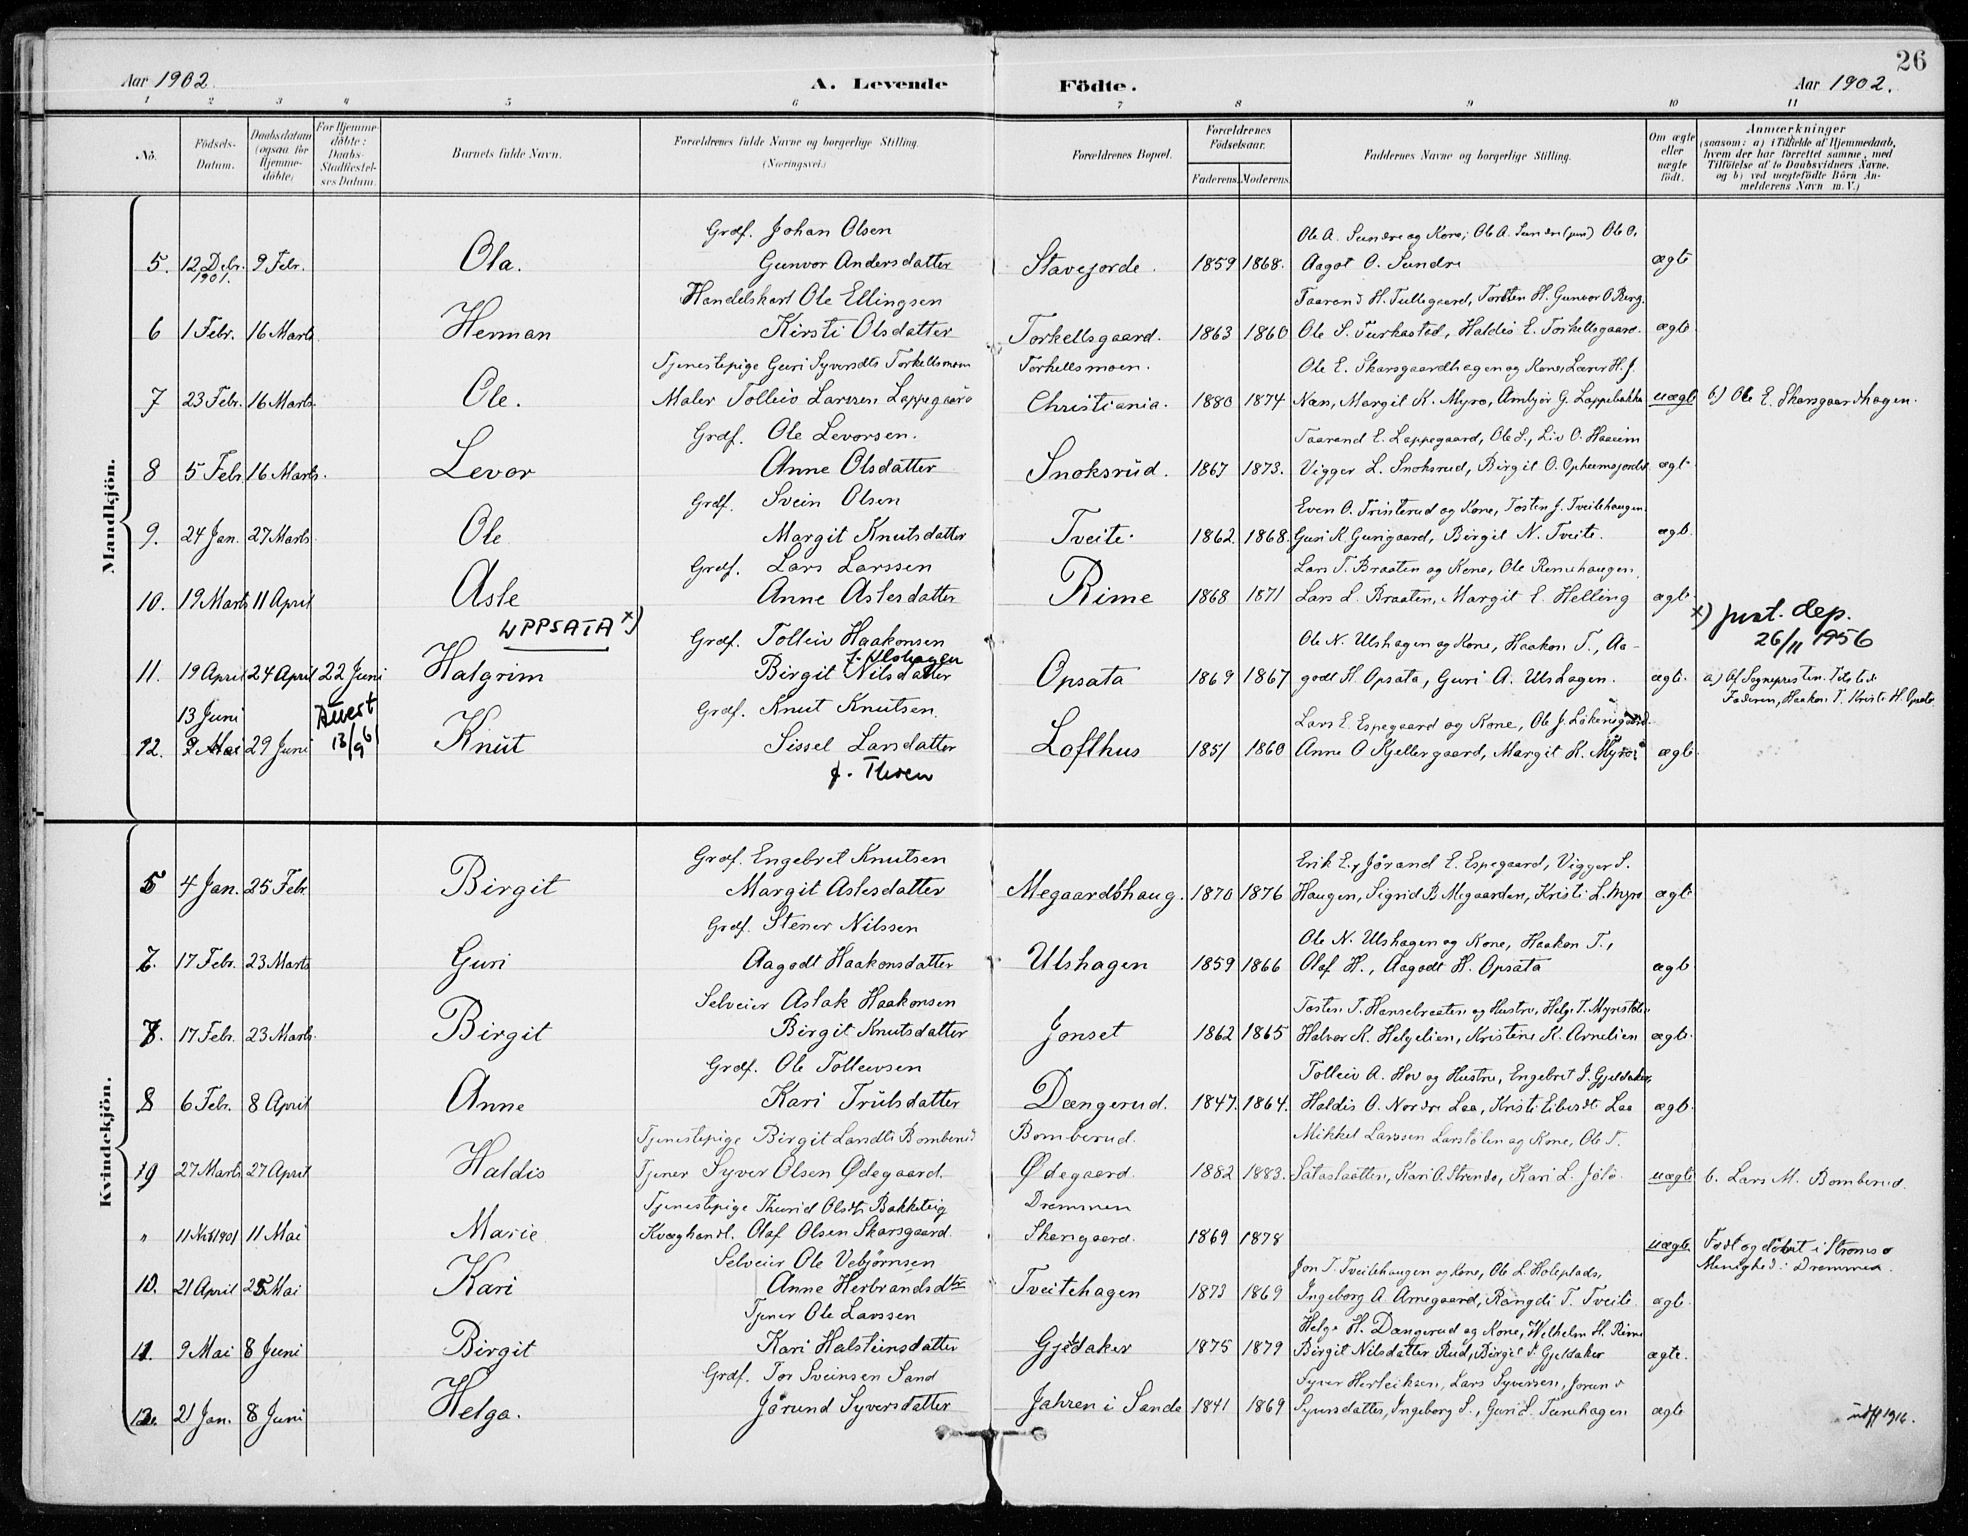 26
Aar 1902.
A. Levende Födte.
Aar 1902.
1 2 3 4 5 6 7 8 9 10 11
No.
Födsels-Datum.
Daabsdatum (ogsaa for Hjemme-döbte)
For Hjemme-döbte: Daabs-Stadfæstelses Datum.
Barnets fulde Navn.
Forældrenes fulde Navne og borgerlige Stilling. (Næringsvei.)
Forældrenes Bopæl.
Forældrenes Födselsaar.
Faderens. Moderens.
Faddernes Navne og borgerlige Stilling.
Om ægte eller uægte födt.
Anmærkninger
(saasom: a) i Tilfælde af Hjemmedaab, hvem der har forrettet samme, med Tilföielse af to Daabsvidners Navne, og b) ved uægtefödte Börn Anmelderens Navn m. V.)
Mandkjön.
Grdf. Johan Olsen Ole A. Sundre og Kone, Ole A. Sundre (jun) Ole O.
5. 12 Debr. 1901. 9 Febr. Ola. Gunvor Andersdatter Stavejorde. 1859 1868. Aagot O. Sundre ægte
Handelskart Ole Ellingsen Taarand H. Tullegaard, Torsten H. Gunvor O. Berg.
6 1 Febr. 16 Marts Herman Kirsti Olsdatter Torkellsgaard. 1863 1860 Ole S. Turkastad, Haldis E. Torkellsgaard. ægte
Tjenestepige Guri Syversdtr Torkellsmoen Torkellsmoen. Ole E. Skarsgaardhagen og Kone, Lærer H. J.
7 23 Febr. 16 Marts. Ole. Maler Tolleiv Larssen Lappegaard Christiania. 1880 1874 Næn, Margit K. Myro, Ambjør G. Lappebakka uægte b) Ole E. Skarsgaardhagen.
Grdf. Ole Levorsen. Taarand E. Lappegaard, Ole S., Liv O. Haaeim
8 5 Febr. 16 Marts. Levor Anne Olsdatter Snoksrud. 1867 1873. Vigger L. Snoksrud, Birgit O. Opheimsjordet ægt
Grdf. Svein Olsen Even O. Tristerud og Kone, Tosten J. Tveitehaugen.
9. 24 Jan. 27 Marts Ole Margit Knutsdatter Tveite. 1862. 1868. Guri K. Gurigaard, Birgit N. Tveite. ægte
Grdf. Lars Larssen Lars T. Braaten og Kone, Ole Rimehaugen
10. 19 Marts 11 April Asle Anne Aslesdatter Rime 1868 1871 Lars L. Braaten, Margit E. Helling ægte
UPPSATA x) x) Just. dep. 26/11 1956
Grdf. Tolleiv Haakonsen Ole N. Ulshagen og Kone, Haakon T., Aa-
f. Ulshagen
11. 19 April 24 April 22 Juni Halgrim Birgit Nilsdatter Opsata 1869 1867 godt H. Opsata, Guri A. Ulshagen. ægte. a) Af Sognepresten. Tilstede
Faderen, Haakon T. Kristi H. Opsata
13 Juni Attest 13/9 61 Grdf. Knut Knutsen. Lars E. Espegaard og Kone, Ole J. Løkensgaard.
12. 2 Mai 29 Juni Knut Sissel Larsdatter Lofthus 1851 1860 Anne O Kjellergaard, Margit K. Myro ægte
f. Thoen
Kvindekjön.
Grdf. Engebret Knutsen Erik E., Jørand E. Espegaard, Vigger S.
5 4 Jan. 25 Febr. Birgit Margit Aslesdatter Megaardshaug. 1870 1876 Haugen, Sigrid B Megaarden, Kristi L. Myro ægte
Grdf. Stener Nilssen Ole N. Ulshagen og Kone, Haakon T.,
6. 17 Febr. 23 Marts Guri Aagodt Haakonsdatter Ulshagen 1859 1866 Olaf H., Aagodt H. Opsata ægte
Selveier Aslak Haakonsen Tosten T. Hansebraaten og Hustru, Helge T. Myrestølen
7. 17 Febr. 23 Marts. Birgit Birgit Knutsdatter Jonset 1862 1865 Halvor K. Helgelien, Kristine K. Arnelien ægte.
Grdf. Ole Tolleivsen Tolleiv A. Hov og Hustru, Engebret J. Gjeldaker,
8 6 Febr. 8 April Anne Kari Trulsdatter Dængerud. 1847. 1864. Haldis O. Nordre Laa, Kristi Eibersdt Laa ægte.
Tjenestepige Birgit Larsdtr Bomberud Bomberud. Mikkel Larssen Larstølen og Kone, Ole T.
9 27 Marts 27 April Haldis Tjener Syver Olsen Ødegaard. Ødegaard 1882 1883. Sataslaatten, Kari O. Strando, Kari L. Jolo uægte b. Lars M. Bomberud.
Tjenestepige Thurid Olsdtr Bakkteig Drammen
" 11 Nov 1901 11 Mai Marie Kvæghandl. Olaf Olsen Skarsgaard. Skarsgaard. 1869 1878 uægte Født og døbt i Strømsø
Menighed i Drammen.
Selveier Ole Vebjørnsen Jon T. Tveitehaugen og Kone, Ole L. Holeplads,
10. 21 April 25 Mai Kari Anne Herbrandsdtr Tveitehagen 1873 1869 Ingeborg A. Arnegaard, Rangdi T. Tveite ægte.
Tjener Ole Larssen Helge H. Dængerud og Kone, Wilhelm H. Rime
11. 9 Mai 8 Juni Birgit Kari Halsteinsdatter Gjeldaker 1875 1879 Birgit Nilsdatter Rud, Birgit S. Gjeldaker ægte.
Grdf. Tor Sveinsen Sand Syver Herleiksen, Lars Syversen, Jorund
12. 21 Jan. 8 Juni Helga. Jørund Syversdatter Jahren i Sande 1841 1869 Syversdatter, Ingeborg S., Guri S. Tunehagen ægte udff 1916.